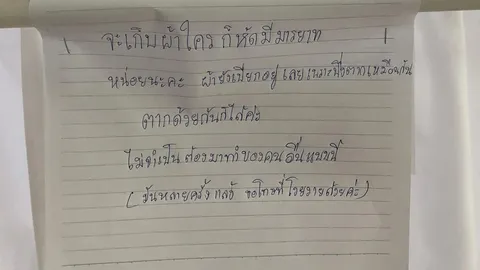 จะเก็บผ้าใคร ก็หัดมีมารยาท
หน่อยนะคะ ผ้ายังเปียกอยู่เลยเพราะพึ่งตากเหมือนกัน
ตากด้วยกันก็ได้ค่ะ
ไม่จำเป็นต้องมาทำของคนอื่นแบบนี้
(มันหลายครั้งแล้ว ขอโทษที่โวยวายด้วยค่ะ)